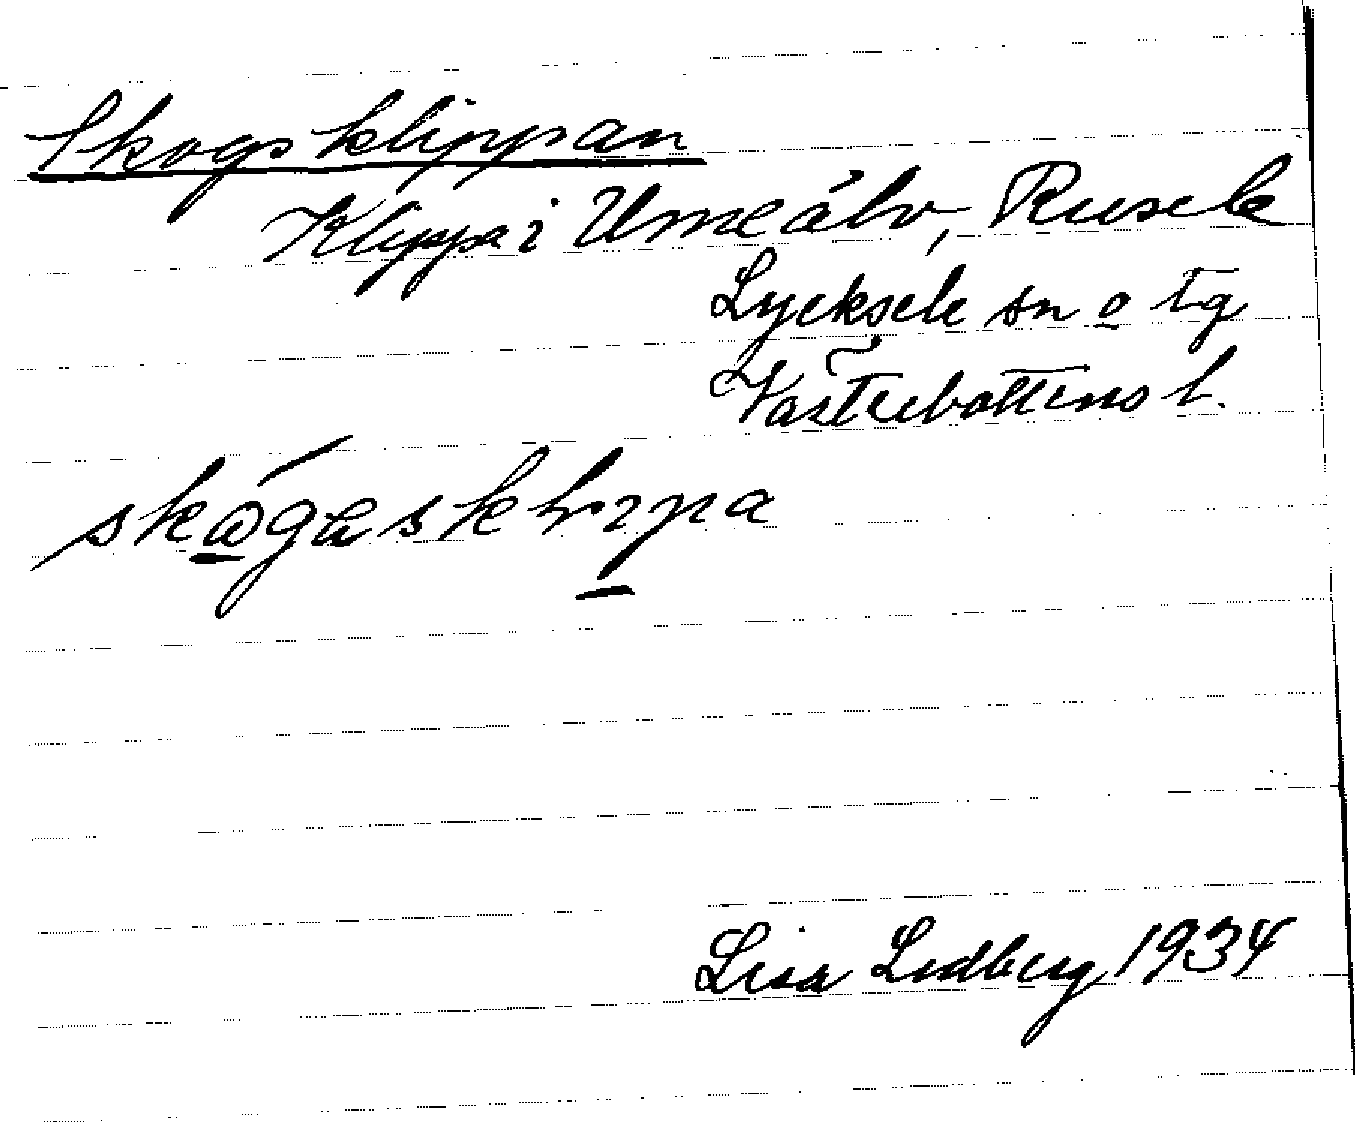 Skogsklippan
Klippa i Umeälv, Rusele
Lycksele sn o tg
Västerbottens l.
Lisa Lidberg 1934